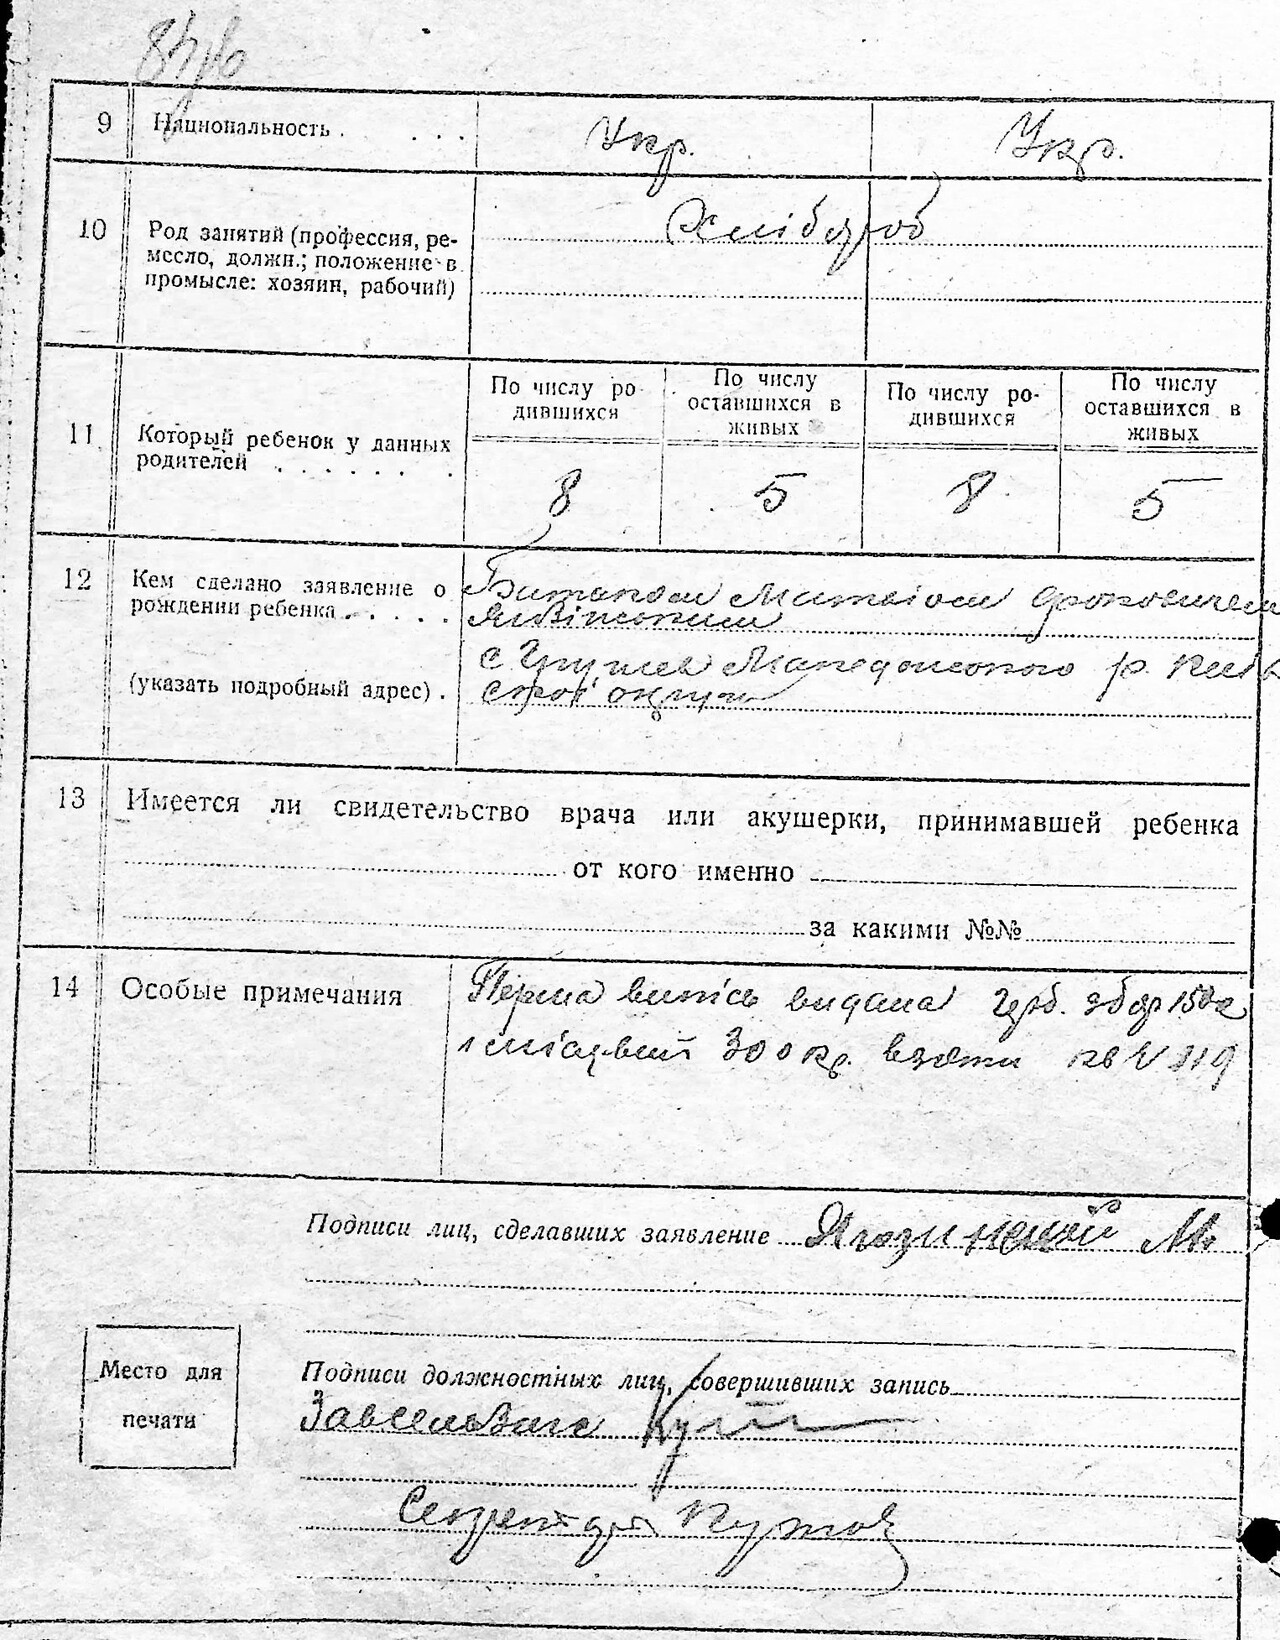 9 Национальность . . . . Укр. Укр.
10 Род занятий (профессия, ре-
месло, должн.; положение в
промысле: хозяин, рабочий)
Хлібороб
11 Который ребенок у данных
родителей . . . . . . .
По числу ро-
дившихся
По числу
оставшихся в
живых
По числу ро-
дившихся
По числу
оставшихся в
живых
8 5 8 5
12 Кем сделано заявление о
рождении ребенка . . . . .
Батьком Матвіом
(указать подробный адрес) .
с Македонского р. Київ
округи
13 Имеется ли свидетельство врача или акушерки, принимавшей ребенка
от кого именно
за какими №№
14 Особые примечания
Перша випісь видана герб. збор
300 кр. взяти кв 119
Подписи лиц, сделавших заявление М.
Место для
печати
Подписи должностных лиц, совершивших запись
Секретарь